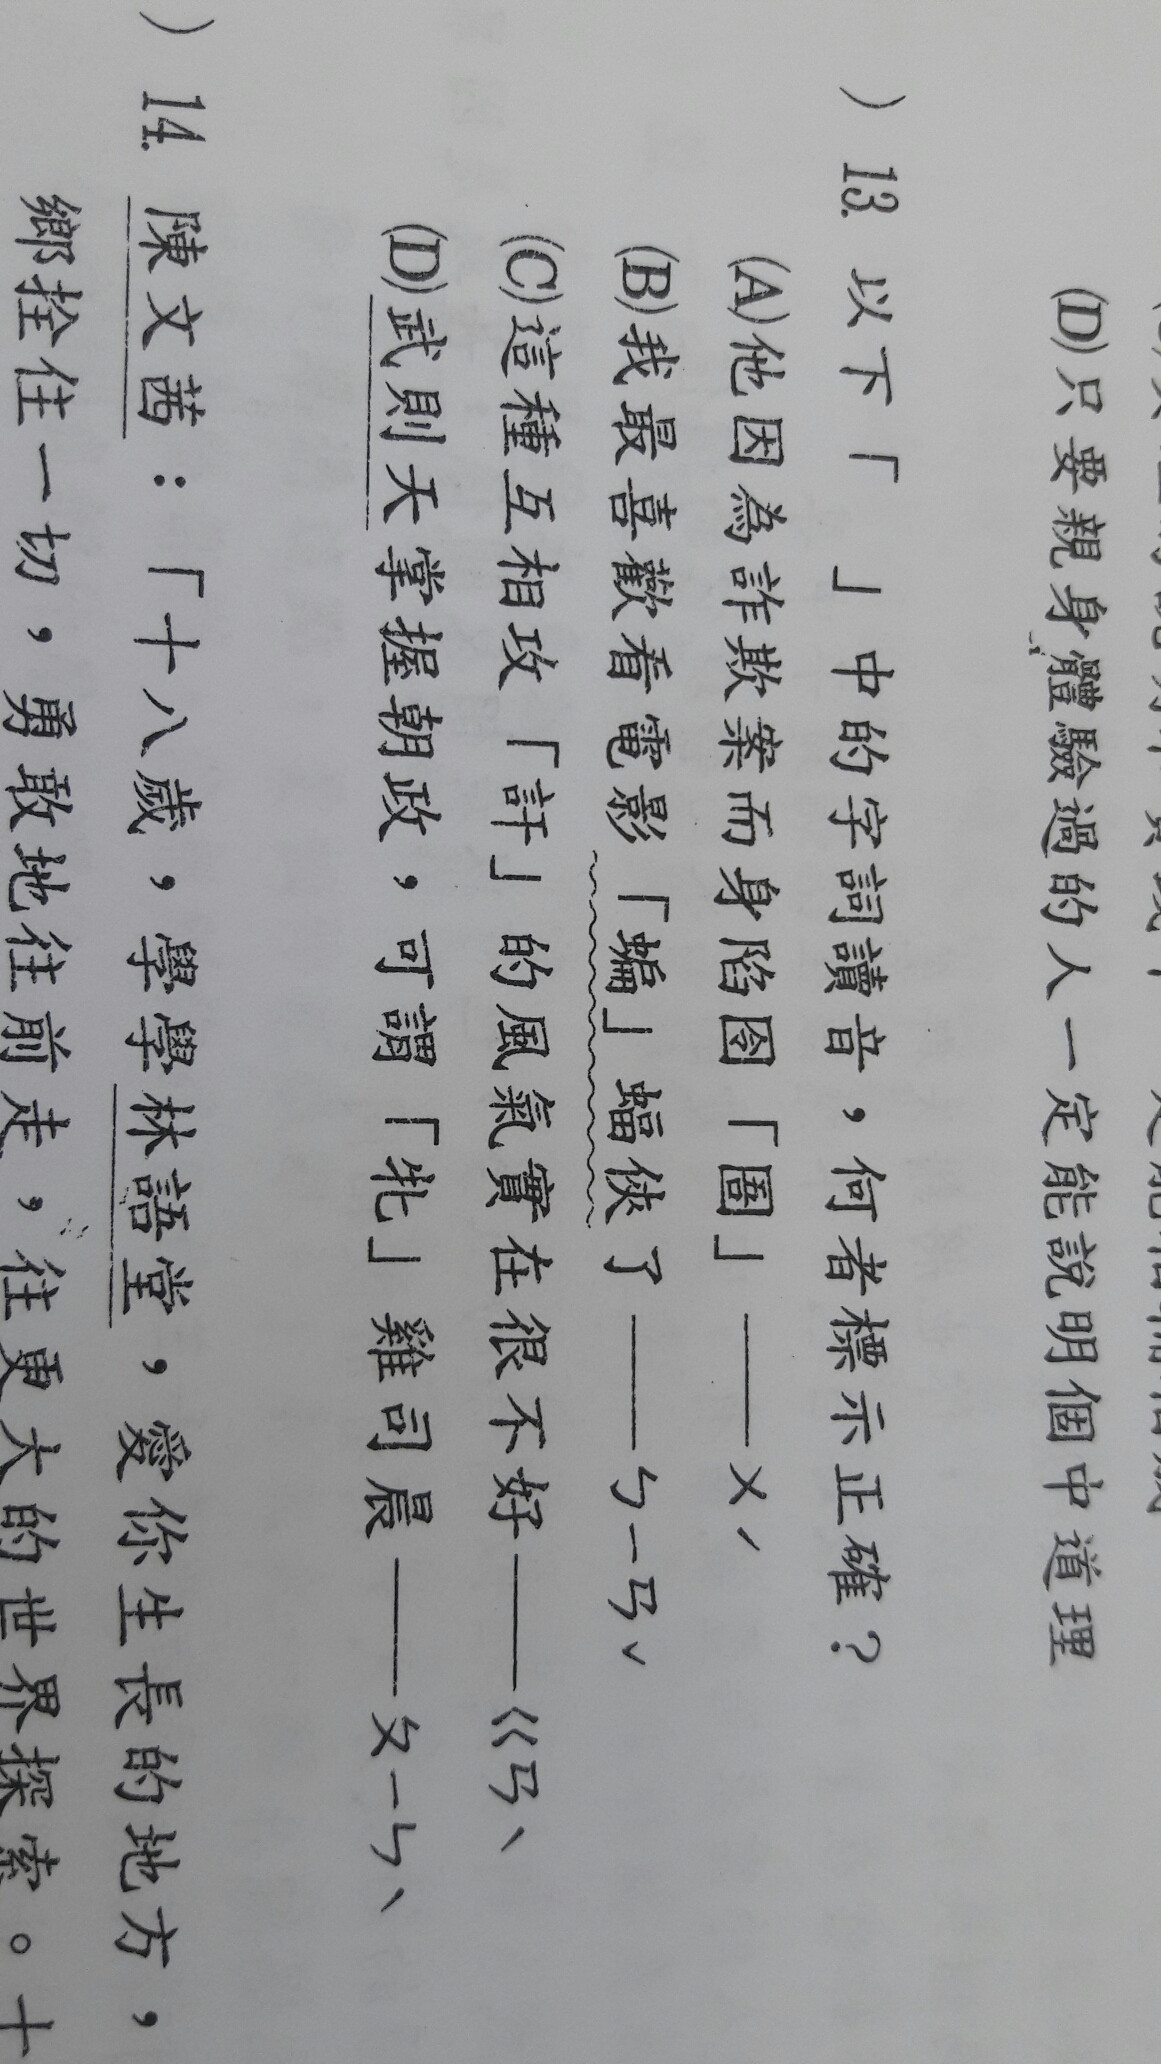 (D)只要親身體驗過的人一定能說明個中道理
)13. 以下「 」中的字詞讀音,何者標示正確?
(A)他因為詐欺案而身陷囹「圄」——ㄨˊ
(B)我最喜歡看電影「蝙」蝠俠了——ㄅㄧㄢˇ
(C)這種互相攻「訐」的風氣實在很不好——ㄍㄢˋ
(D)武則天掌握朝政,可謂「牝」雞司晨——ㄆㄧㄣˋ
)14. 陳文茜:「十八歲,學學林語堂,愛你生長的地方,
鄉拴住一切,勇敢地往前走,往更大的世界探索。十